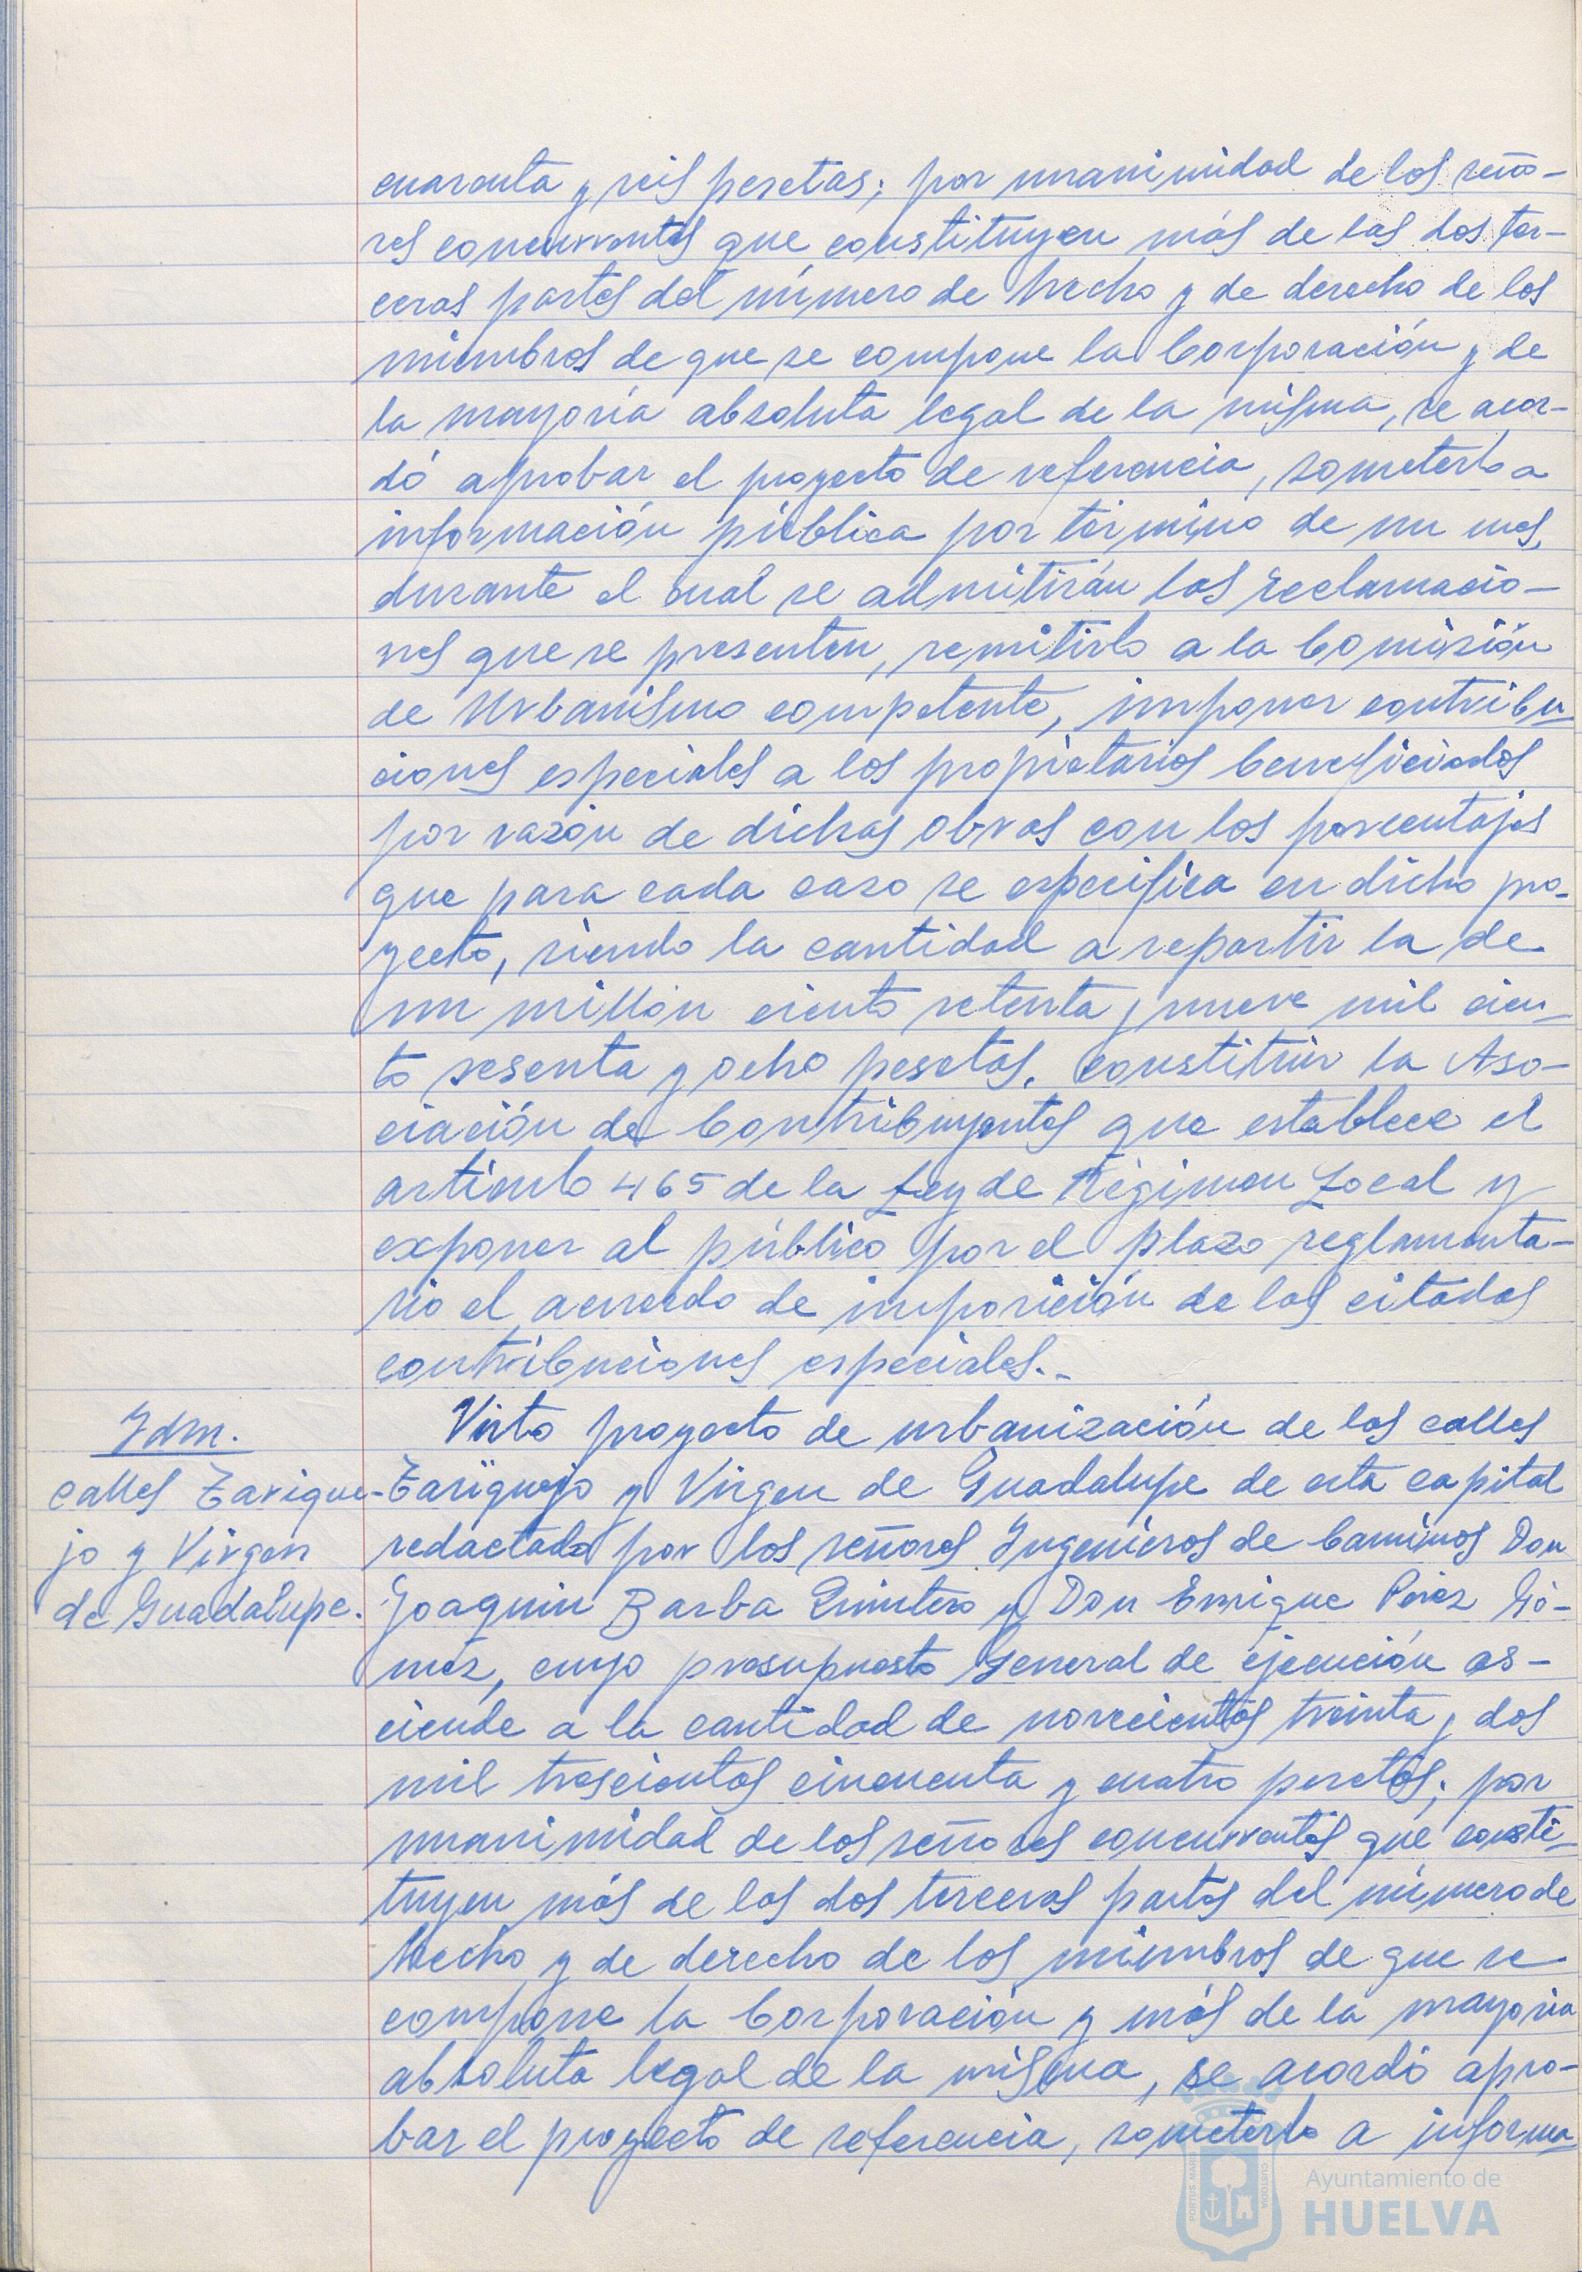 cuarenta y seis pesetas; por unanimidad de los seño-
res concurrentes que constituyen más de las dos ter-
ceras partes del número de hecho y de derecho de los
miembros de que se compone la Corporación y de
la mayoría absoluta legal de la misma, se acor-
dó aprobar el proyecto de referencia, someterlo a
información pública por término de un mes,
durante el cual se admitirán las reclamacio-
nes que se presenten, remitirlo a la Comisión
de Urbanismo competente, imponer contribu
ciones especiales a los propietarios beneficiados
por razón de dichas obras con los porcentajes
que para cada caso se especifica en dicho pro-
yecto, siendo la cantidad a repartir la de
un millón ciento setenta y nueve mil cien-
to sesenta y ocho pesetas, constituir la Aso-
ciación de Contribuyentes que establece el
artículo 465 de la Ley de Régimen Local y
exponer al público por el plazo reglamenta-
rio el acuerdo de imposición de las citadas
contribuciones especiales.-
Idm.
calles Tarique-
jo y Virgen
de Guadalupe.
Visto proyecto de urbanización de las calles
Tariquejo y Virgen de Guadalupe de esta capital
redactado por los señores Ingenieros de Caminos Don
Joaquin Barba Quintero y Don Enrique Pérez Gó-
mez, cuyo presupuesto General de ejecución as-
ciende a la cantidad de novecientas treinta y dos
mil trescientas cincuenta y cuatro pesetas; por
unanimidad de los señores concurrentes que consti-
tuyen más de las dos terceras partes del número de
hecho y de derecho de los miembros de que se
compone la Corporación y más de la mayoría
absoluta legal de la misma, se acordó apro-
bar el proyecto de referencia, someterlo a informa
PORTUS MARIS
CUSTODIA
Ayuntamiento de
HUELVA